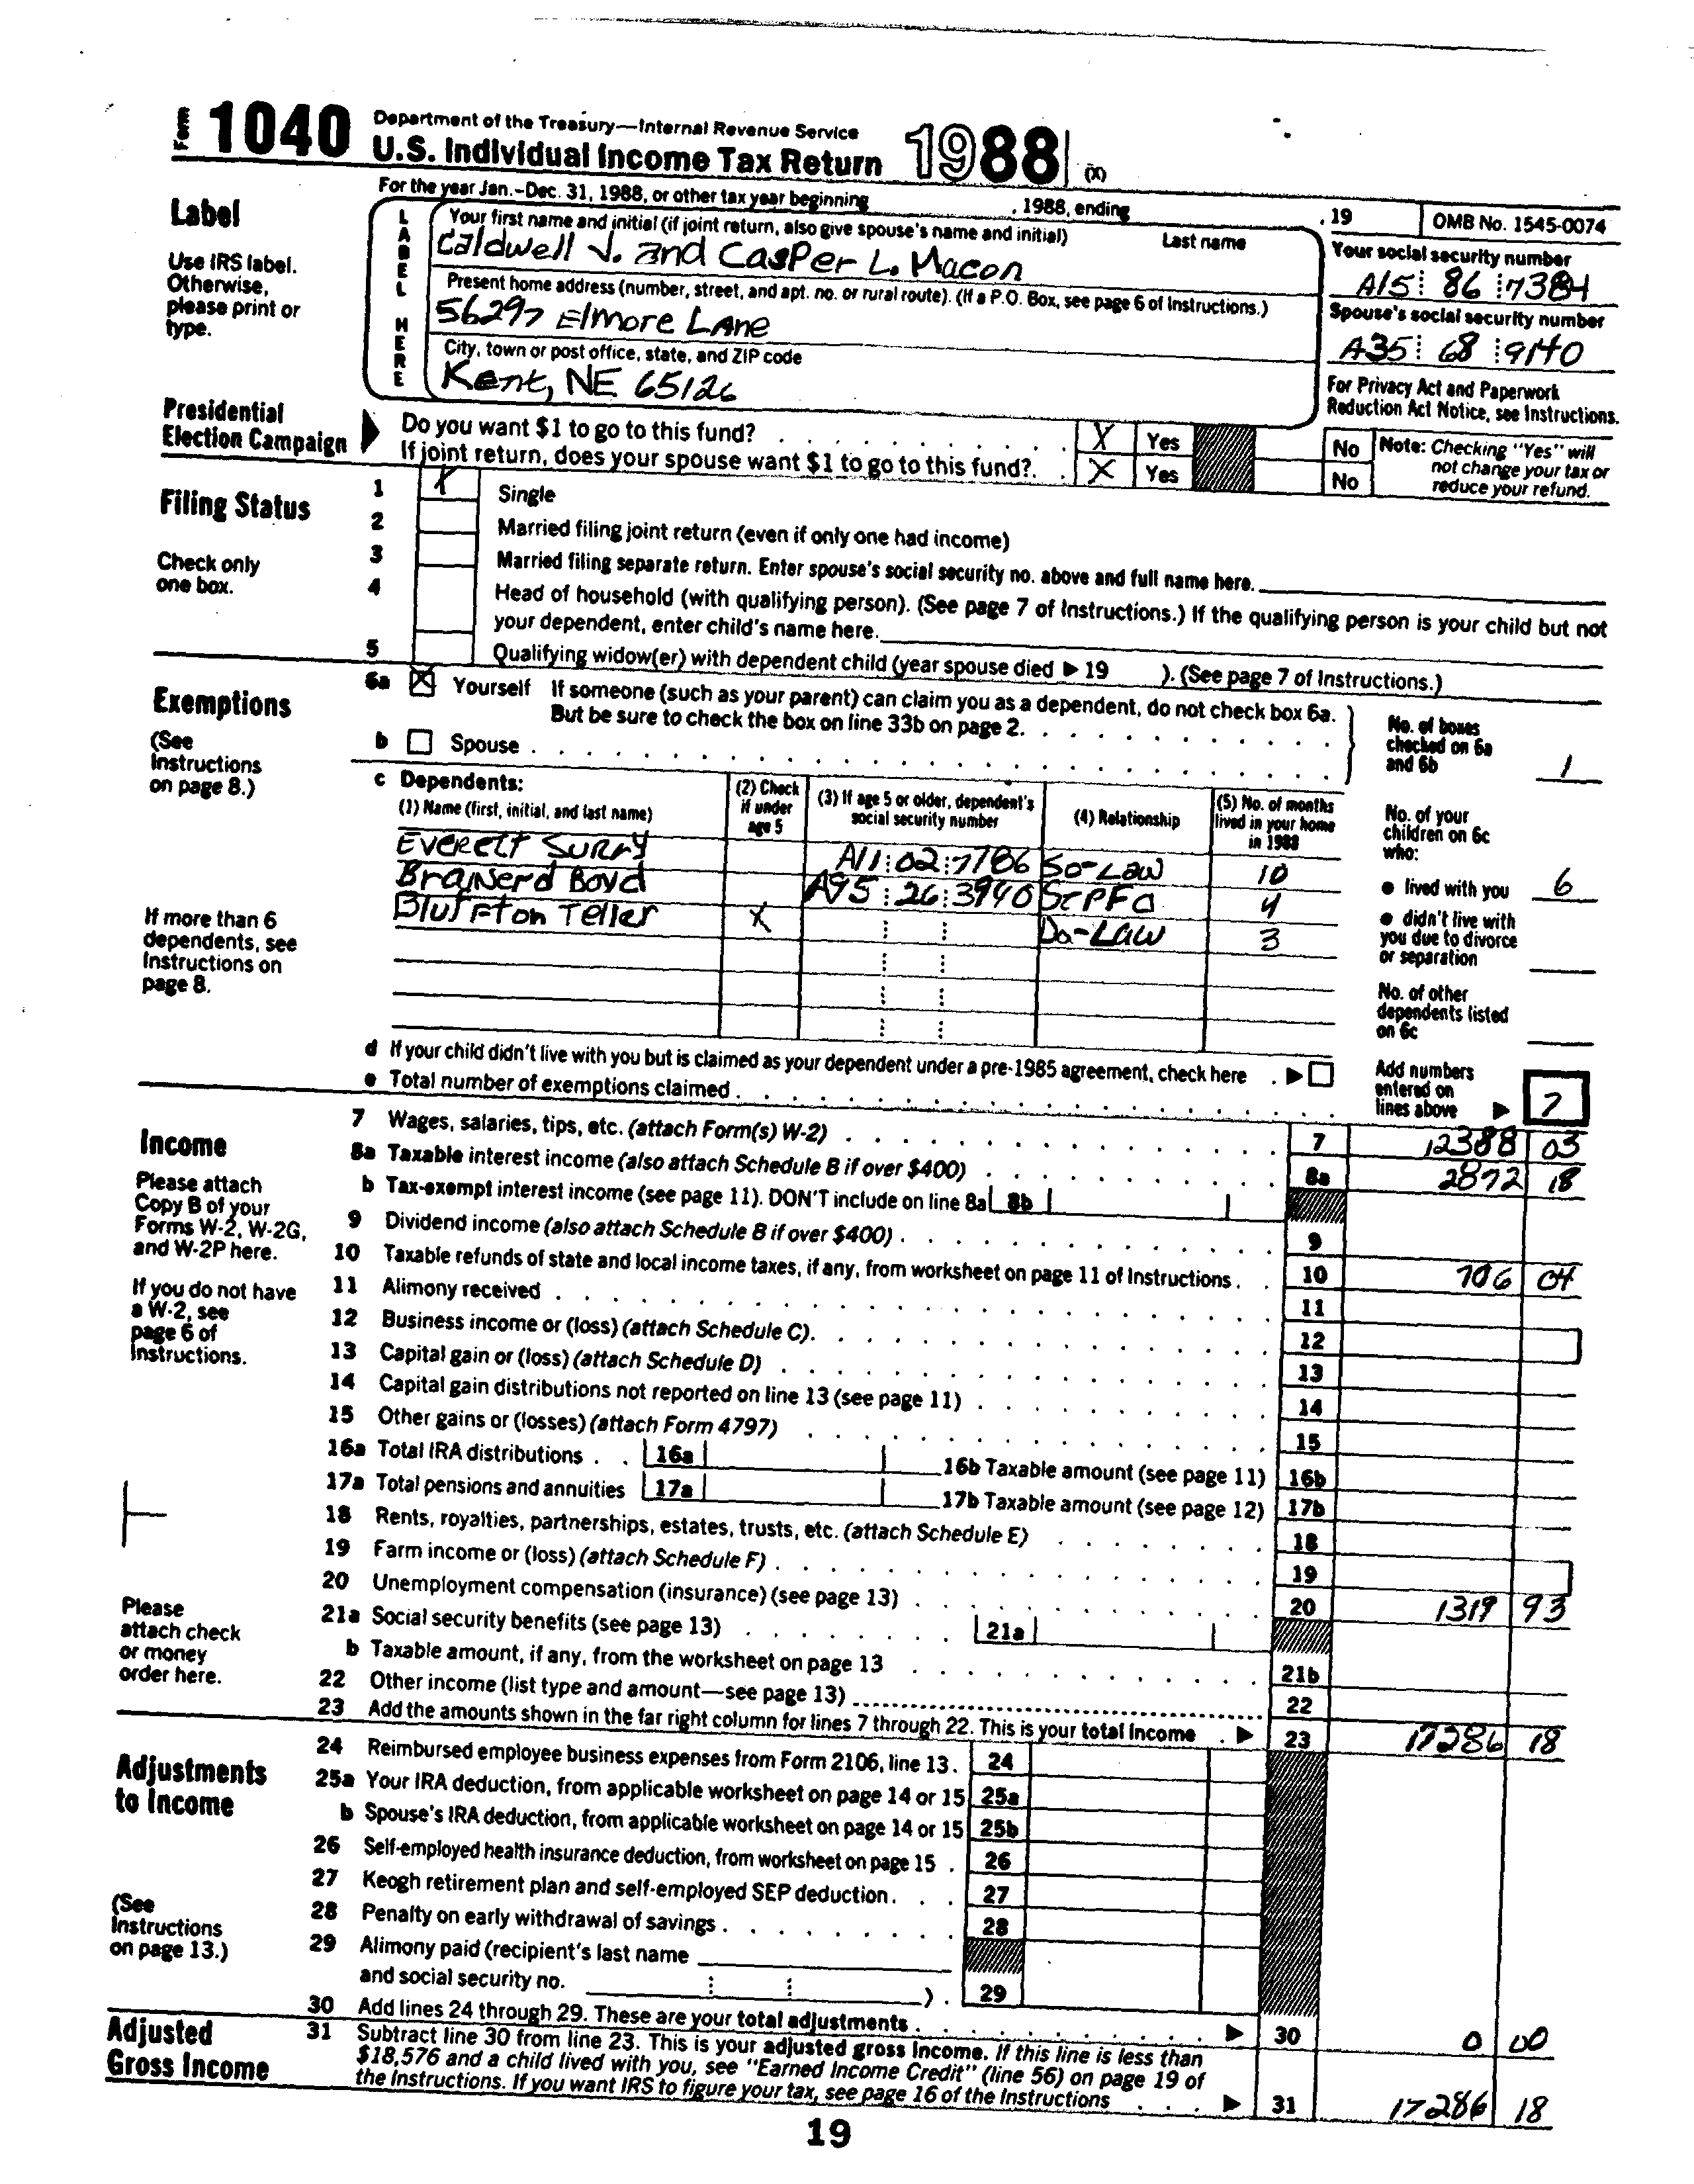 Form 1040 Department of the Treasury—Internal Revenue Service
U.S. Individual Income Tax Return 1988 (X)
For the year Jan.-Dec. 31, 1988, or other tax year beginning , 1988, ending , 19 OMB No. 1545-0074
Label
Use IRS label.
Otherwise,
please print or
type.
LABEL HERE
Your first name and initial (if joint return, also give spouse's name and initial) Last name
Caldwell J. and Casper L. Macon
Your social security number
A15 86 7384
Present home address (number, street, and apt. no. or rural route). (If a P.O. Box, see page 6 of Instructions.)
56297 Elmore Lane
Spouse's social security number
A35 68 9140
City, town or post office, state, and ZIP code
Kent, NE 65126
For Privacy Act and Paperwork
Reduction Act Notice, see Instructions.
Presidential
Election Campaign
Do you want $1 to go to this fund? X Yes No
If joint return, does your spouse want $1 to go to this fund? X Yes No
Note: Checking "Yes" will
not change your tax or
reduce your refund.
Filing Status
Check only
one box.
1 X Single
2 Married filing joint return (even if only one had income)
3 Married filing separate return. Enter spouse's social security no. above and full name here.
4 Head of household (with qualifying person). (See page 7 of Instructions.) If the qualifying person is your child but not
your dependent, enter child's name here.
5 Qualifying widow(er) with dependent child (year spouse died ▶ 19 ). (See page 7 of Instructions.)
Exemptions
(See
Instructions
on page 8.)
6a X Yourself If someone (such as your parent) can claim you as a dependent, do not check box 6a.
But be sure to check the box on line 33b on page 2.
b Spouse
No. of boxes
checked on 6a
and 6b 1
c Dependents:
(1) Name (first, initial, and last name)
(2) Check
if under
age 5
(3) If age 5 or older, dependent's
social security number
(4) Relationship
(5) No. of months
lived in your home
in 1988
Everett Surry A11 02 7786 So-Law 10
Brainerd Boyd A95 26 3940 StPFa 4
Bluffton Teller X Da-Law 3
If more than 6
dependents, see
Instructions on
page 8.
No. of your
children on 6c
who:
● lived with you 6
● didn't live with
you due to divorce
or separation
No. of other
dependents listed
on 6c
d If your child didn't live with you but is claimed as your dependent under a pre-1985 agreement, check here ▶
e Total number of exemptions claimed
Add numbers
entered on
lines above ▶ 7
Income
Please attach
Copy B of your
Forms W-2, W-2G,
and W-2P here.
If you do not have
a W-2, see
page 6 of
Instructions.
Please
attach check
or money
order here.
7 Wages, salaries, tips, etc. (attach Form(s) W-2) 7 12388 03
8a Taxable interest income (also attach Schedule B if over $400) 8a 2872 18
b Tax-exempt interest income (see page 11). DON'T include on line 8a 8b
9 Dividend income (also attach Schedule B if over $400) 9
10 Taxable refunds of state and local income taxes, if any, from worksheet on page 11 of Instructions 10 706 04
11 Alimony received 11
12 Business income or (loss) (attach Schedule C) 12
13 Capital gain or (loss) (attach Schedule D) 13
14 Capital gain distributions not reported on line 13 (see page 11) 14
15 Other gains or (losses) (attach Form 4797) 15
16a Total IRA distributions 16a 16b Taxable amount (see page 11) 16b
17a Total pensions and annuities 17a 17b Taxable amount (see page 12) 17b
18 Rents, royalties, partnerships, estates, trusts, etc. (attach Schedule E) 18
19 Farm income or (loss) (attach Schedule F) 19
20 Unemployment compensation (insurance) (see page 13) 20 1319 93
21a Social security benefits (see page 13) 21a
b Taxable amount, if any, from the worksheet on page 13 21b
22 Other income (list type and amount—see page 13) 22
23 Add the amounts shown in the far right column for lines 7 through 22. This is your total income ▶ 23 17286 18
Adjustments
to Income
(See
Instructions
on page 13.)
24 Reimbursed employee business expenses from Form 2106, line 13. 24
25a Your IRA deduction, from applicable worksheet on page 14 or 15 25a
b Spouse's IRA deduction, from applicable worksheet on page 14 or 15 25b
26 Self-employed health insurance deduction, from worksheet on page 15 26
27 Keogh retirement plan and self-employed SEP deduction 27
28 Penalty on early withdrawal of savings 28
29 Alimony paid (recipient's last name
and social security no. ) 29
30 Add lines 24 through 29. These are your total adjustments ▶ 30 0 00
Adjusted
Gross Income
31 Subtract line 30 from line 23. This is your adjusted gross income. If this line is less than
$18,576 and a child lived with you, see "Earned Income Credit" (line 56) on page 19 of
the Instructions. If you want IRS to figure your tax, see page 16 of the Instructions ▶ 31 17286 18
19